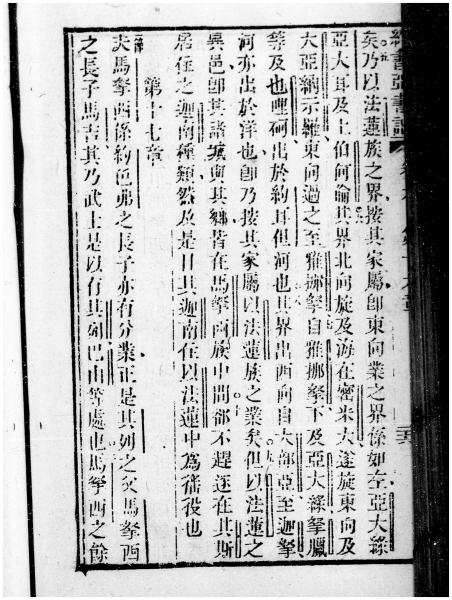 矣乃以法蓮族之界按其家屬卽東向業之界係如左亞大綠
亞大耳及上伯何倫其界北向旋及海在密米大遂旋東向及
大亞納示羅東向過之至雅挪拏自雅挪拏下及亞大綠拏臘
等及也哩砢出於約耳但河也其界出西向自大部亞至迦拏
河亦出於洋也卽乃按其家屬以法蓮族之業矣但以法蓮之
異邑卽其諸城與其鄉皆在馬拏西族中間都不趕逐在其斯
居住之迦南種類然及是日其迦南在以法蓮中爲役也
第十七章
夫馬拏西係約色弗之長子亦有分業正是其列之父馬拏西
之長子馬吉其乃武士是以有其列巴山等處也馬拏西之餘